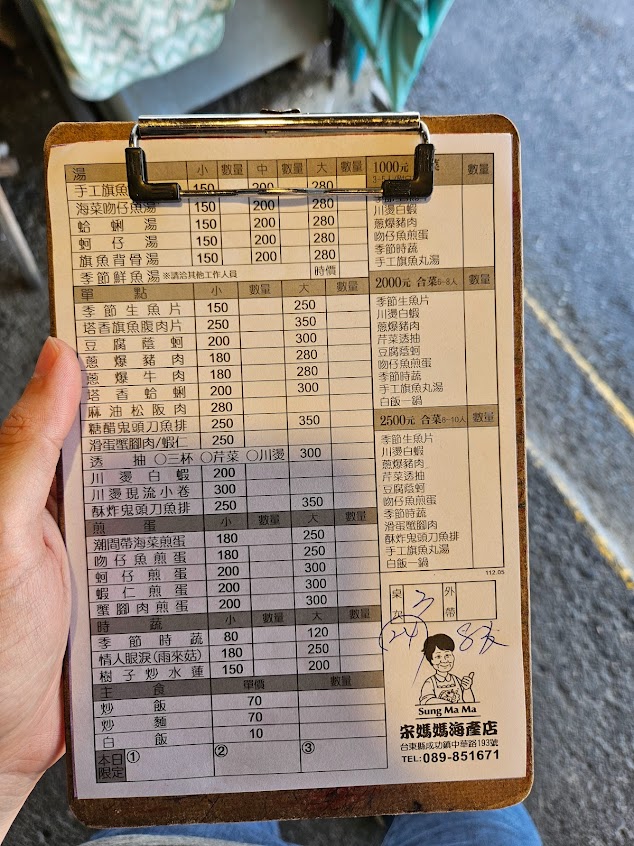 湯 小 數量 中 數量 大 數量
手工旗魚 150 200 280
海菜吻仔魚湯 150 200 280
蛤蜊湯 150 200 280
蚵仔湯 150 200 280
旗魚背骨湯 150 200 280
季節鮮魚湯 ※請洽其他工作人員 時價
單點 小 數量 大 數量
季節生魚片 150 250
塔香旗魚腹肉片 250 350
豆腐蔭蚵 200 300
蔥爆豬肉 180 280
蔥爆牛肉 180 280
塔香蛤蜊 200 300
麻油松阪肉 280
糖醋鬼頭刀魚排 250 350
滑蛋蟹腳肉/蝦仁 250
透抽 〇三杯 〇芹菜 〇川燙 300
川燙白蝦 200
川燙現流小卷 300
酥炸鬼頭刀魚排 250 350
煎蛋 小 數量 大 數量
潮間帶海菜煎蛋 180 250
吻仔魚煎蛋 180 250
蚵仔煎蛋 200 300
蝦仁煎蛋 200 300
蟹腳肉煎蛋 200 300
時蔬 小 數量 大 數量
季節時蔬 80 120
情人眼淚(雨來菇) 180 250
樹子炒水蓮 150 200
主食 單價 數量
炒飯 70
炒麵 70
白飯 10
本日限定 ① ② ③
1000元 菜 數量
3-5人
季節生魚片
川燙白蝦
蔥爆豬肉
吻仔魚煎蛋
季節時蔬
手工旗魚丸湯
2000元 合菜6-8人 數量
季節生魚片
川燙白蝦
蔥爆豬肉
芹菜透抽
豆腐蔭蚵
吻仔魚煎蛋
季節時蔬
手工旗魚丸湯
白飯一鍋
2500元 合菜8-10人 數量
季節生魚片
川燙白蝦
蔥爆豬肉
芹菜透抽
豆腐蔭蚵
吻仔魚煎蛋
季節時蔬
滑蛋蟹腳肉
酥炸鬼頭刀魚排
手工旗魚丸湯
白飯一鍋
112.05
桌次 3 外帶
24
Sung Ma Ma
宋媽媽海產店
台東縣成功鎮中華路193號
TEL:089-851671